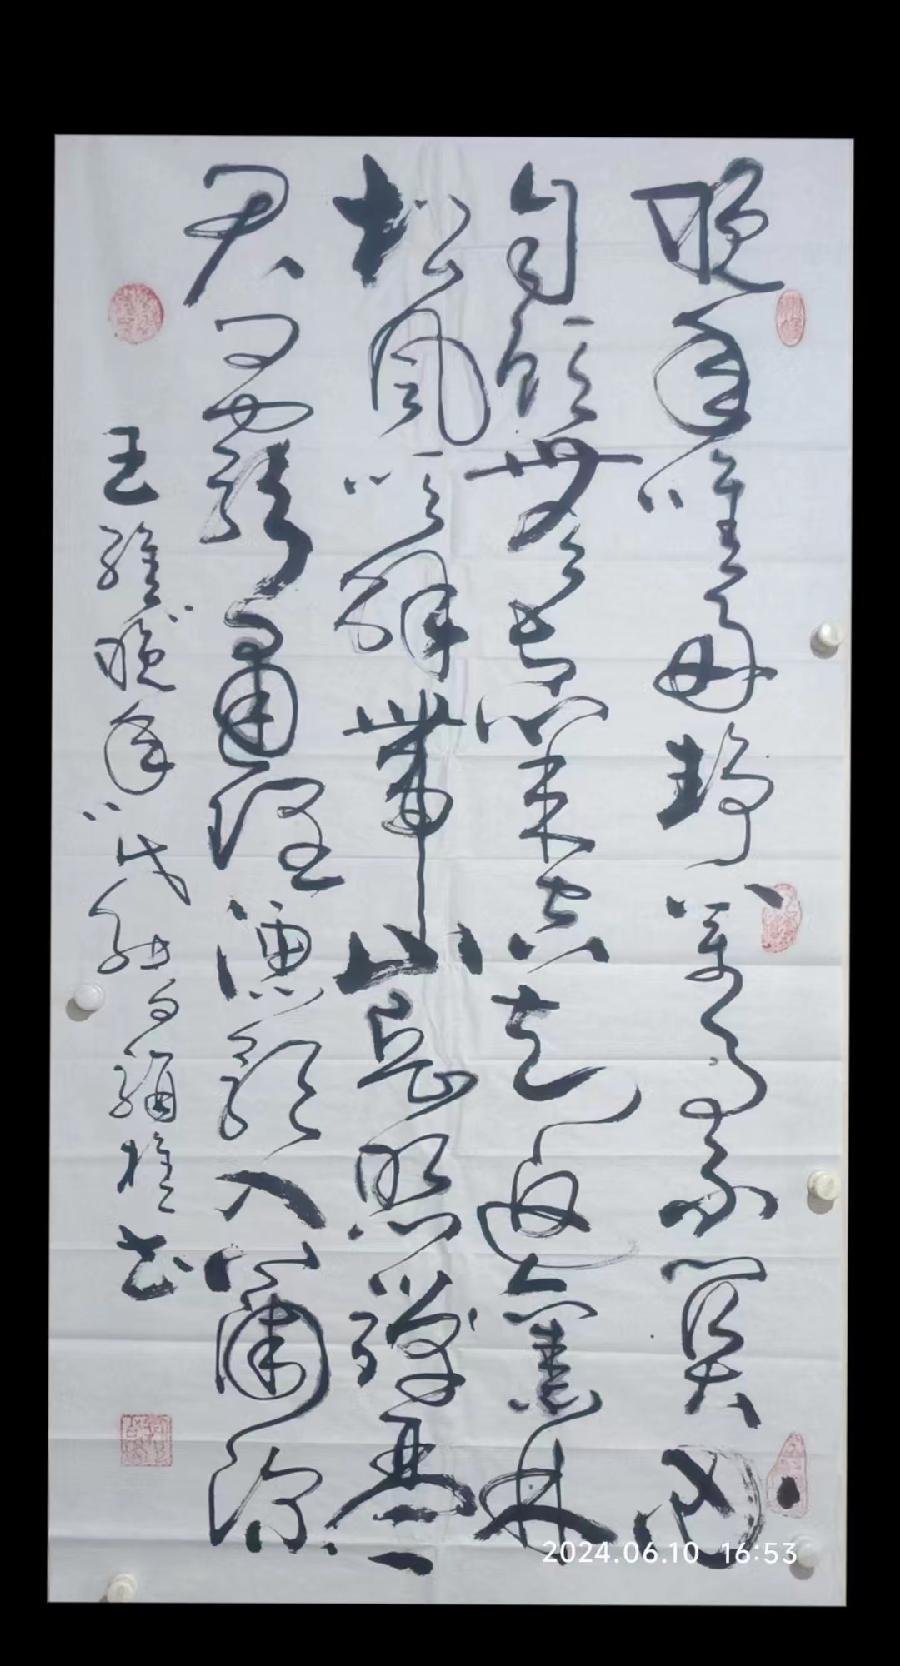 晚年惟好靜萬事不關心
自顧無長策空知返舊林
松風吹解帶山月照彈琴
君問窮通理漁歌入浦深
王維晚年書
2024.06.10 16:53